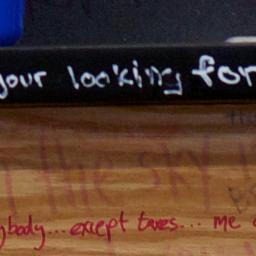 your looking for
the sky
ybody... except taxes... me